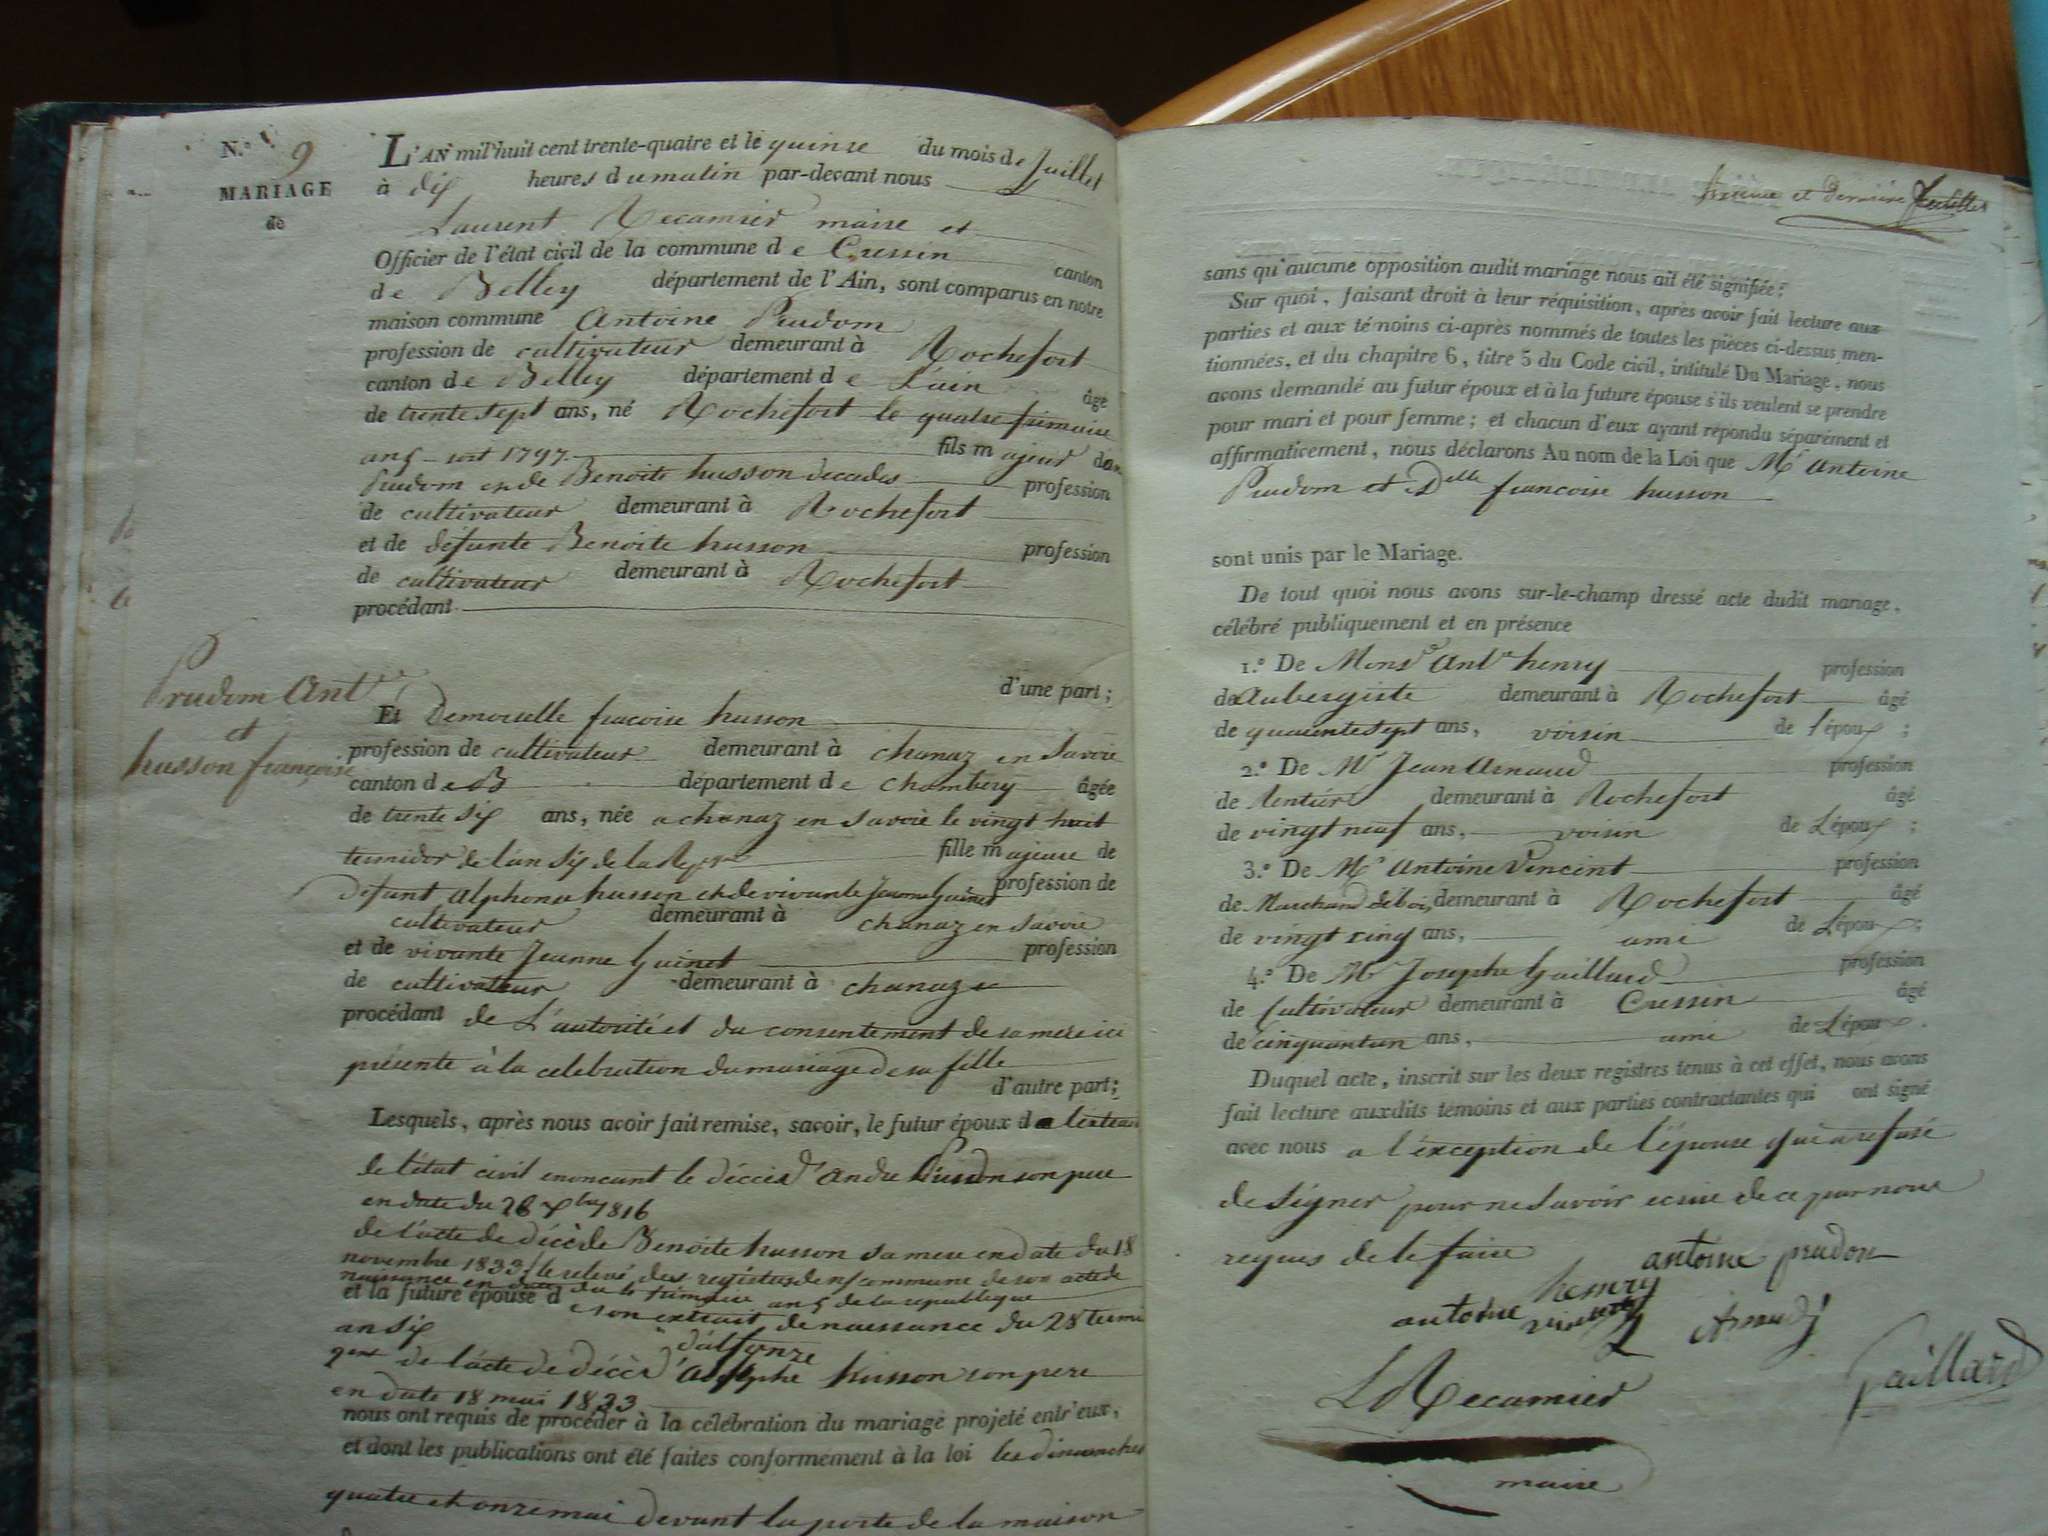 N.° 9
MARIAGE
de
Prudom Ant.ne
et
husson françoise
L'AN mil huit cent trente-quatre et le quinze du mois de Juillet
à dix heures du matin par-devant nous
Laurent Recamier maire et
Officier de l'état civil de la commune de Cressin canton
de Belley département de l'Ain, sont comparus en notre
maison commune Antoine Prudom
profession de cultivateur demeurant à Rochefort
canton de Belley département de L'ain âgé
de trente sept ans, né Rochefort le quatre frimaire
an 5 1797 fils majeur
Prudom et de Benoite husson decedes profession
de cultivateur demeurant à Rochefort
et de defunte Benoite husson profession
de cultivateur demeurant à Rochefort
procédant
d'une part;
Et Demoiselle francoise husson
profession de cultivateur demeurant à chanaz en Savoie
canton de B département de chambery âgée
de trente six ans, née a chanaz en Savoie le vingt huit
termidor de l'an six de la fille majeure de
defunt Alphonse husson et de vivante Jeanne Guinet profession de
cultivateur demeurant à chanaz en Savoie
et de vivante Jeanne Guinet profession
de cultivateur demeurant à chanaz
procédant de L'autorité et du consentement de sa mere ici
présente à la celebration du mariage de sa fille
d'autre part;
Lesquels, après nous avoir fait remise, savoir, le futur époux de
de l'état civil enoncant le déces d'andré Prudom son pere
en date du 26 Xbre 1816
de l'acte de décè de Benoite husson sa mere en date du 18
novembre 1833 / le relevé des registres de commune de son acte de
naissance en date du 4 frimaire an 5 de la republique
et la future épouse de son extrait de naissance du 28 termi
an six
d'alfonze
de l'acte de décès d'Adolphe husson son pere
en date 18 mai 1833
nous ont requis de procéder à la célébration du mariage projeté entr'eux,
et dont les publications ont été faites conformément à la loi les dimanches
quatre et onze mai devant la porte de la maison
et derniere
sans qu'aucune opposition audit mariage nous ait été signifiée;
Sur quoi, faisant droit à leur réquisition, après avoir fait lecture aux
parties et aux témoins ci-après nommés de toutes les pièces ci-dessus men-
tionnées, et du chapitre 6, titre 5 du Code civil, intitulé Du Mariage, nous
avons demandé au futur époux et à la future épouse s'ils veulent se prendre
pour mari et pour femme; et chacun d'eux ayant répondu séparément et
affirmativement, nous déclarons Au nom de la Loi que Mr Antoine
Prudom et Delle francoise husson
sont unis par le Mariage.
De tout quoi nous avons sur-le-champ dressé acte dudit mariage,
célébré publiquement et en présence
1.° De Monsr Ante henry profession
de Aubergiste demeurant à Rochefort âgé
de quarante sept ans, voisin de l'époux;
2.° De Mr Jean Arnaud profession
de Rentier demeurant à Rochefort âgé
de vingt neuf ans, voisin de L'époux;
3.° De Mr Antoine Vincent profession
de Marchand de bois demeurant à Rochefort âgé
de vingt cinq ans, ami de L'époux;
4.° De Mr Josephe Gaillard profession
de Cultivateur demeurant à Cressin âgé
de cinquantun ans, ami de L'époux.
Duquel acte, inscrit sur les deux registres tenus à cet effet, nous avons
fait lecture auxdits témoins et aux parties contractantes qui ont signé
avec nous a l'éxception de l'épouse qui a refusé
de signer pour ne Savoir ecrire de ce par nous
requis de le faire
antoine prudon
henry
antoine vincent
Arnaud
Gaillard
L Recamier
maire